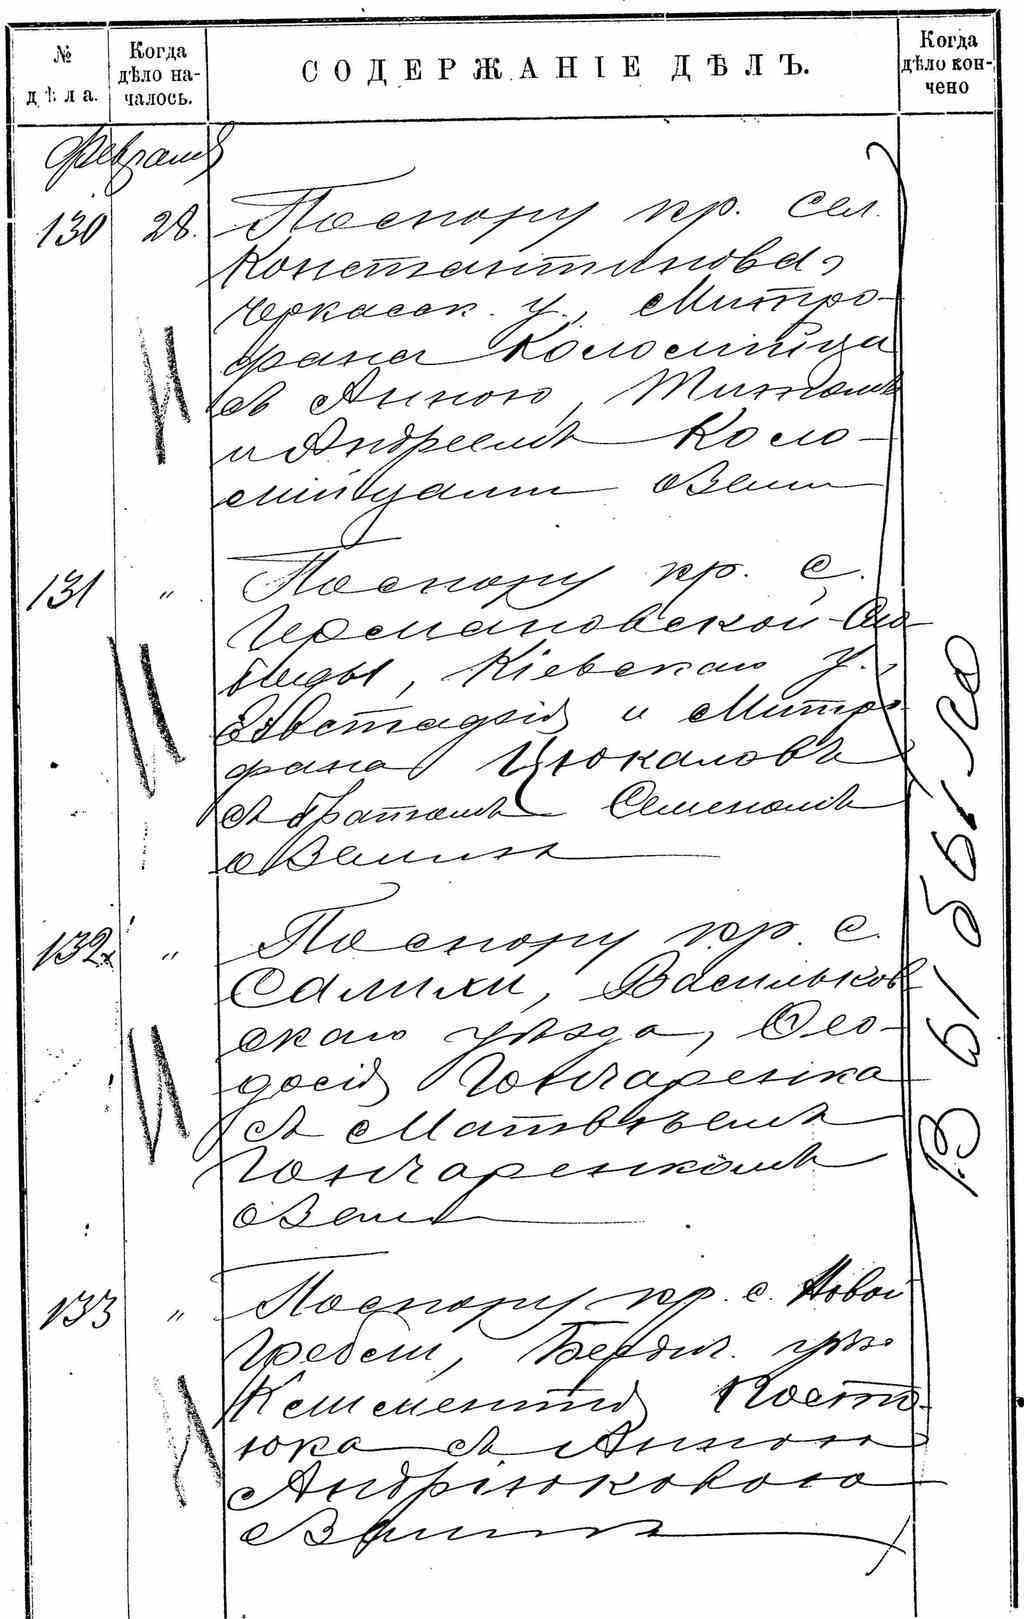 № дѣла.
Когда дѣло началось.
СОДЕРЖАНІЕ ДѢЛЪ.
Когда дѣло кончено
Февраля
130 28. По спору кр. сел.
Константинова,
Черкасск. у., Митро-
фана Коломійца
съ Анною,
и Андреемъ Коло-
мійцами о земли
131 " По спору кр. с.
Германовской-Сло-
боды, Кіевскаго у.,
Евстафія и Митро-
фана Цюкаловъ
съ братомъ Семеномъ
о землѣ
132 " По спору кр. с.
Салихи, Васильков-
скаго уѣзда, Ѳео-
досія Гончаренка
съ Матвѣемъ
Гончаренкомъ
о земл
133 " По спору кр. с. Новой
Гребли, Бердич. уѣз.
Климентія Костю-
юка съ Анною
Андріюковою
о землѣ
Выбыло